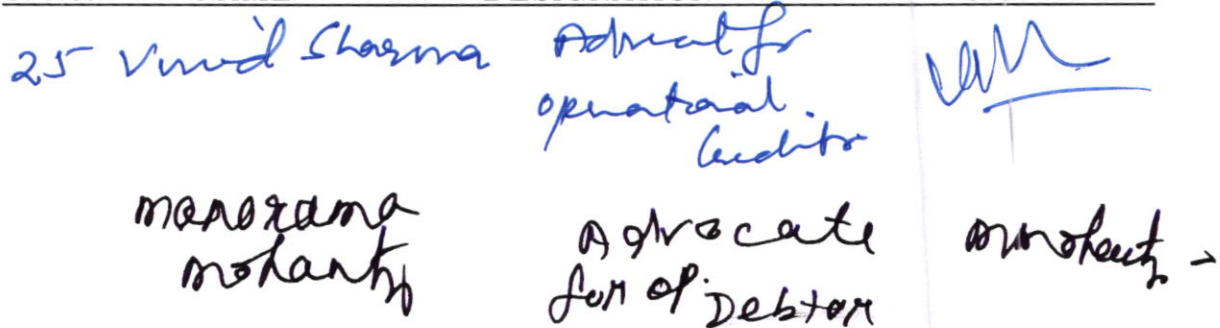 25 Vinod Sharma Advocate for
operational
Creditor
Manorama
Mohanty
Advocate
for op. Debtor
Mmohanty